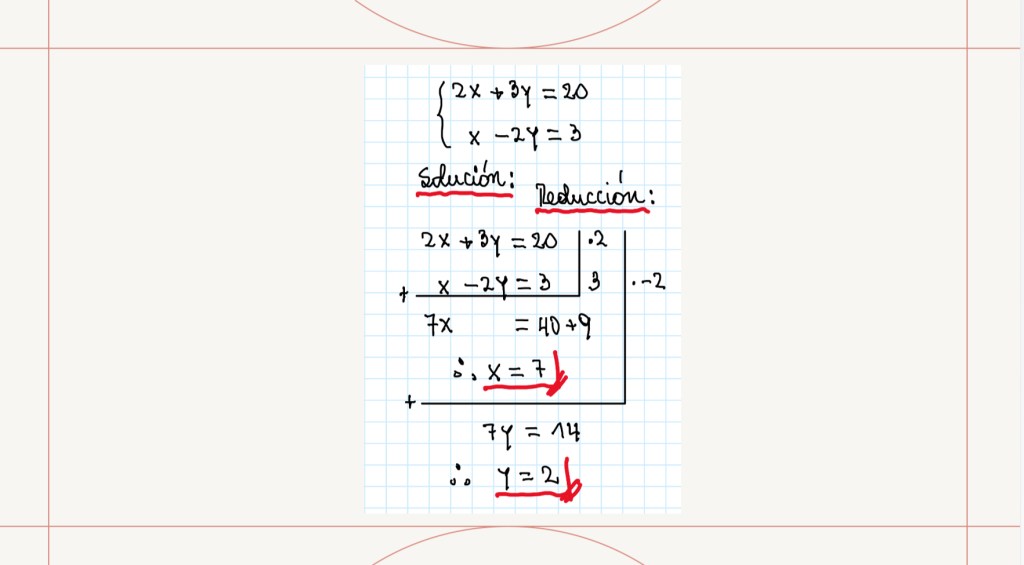 2x + 3y = 20
x - 2y = 3
Solución:
Reducción:
2x + 3y = 20 | ·2
+ x - 2y = 3 | 3 | ·-2
7x = 40 + 9
∴ x = 7
+
7y = 14
∴ y = 2